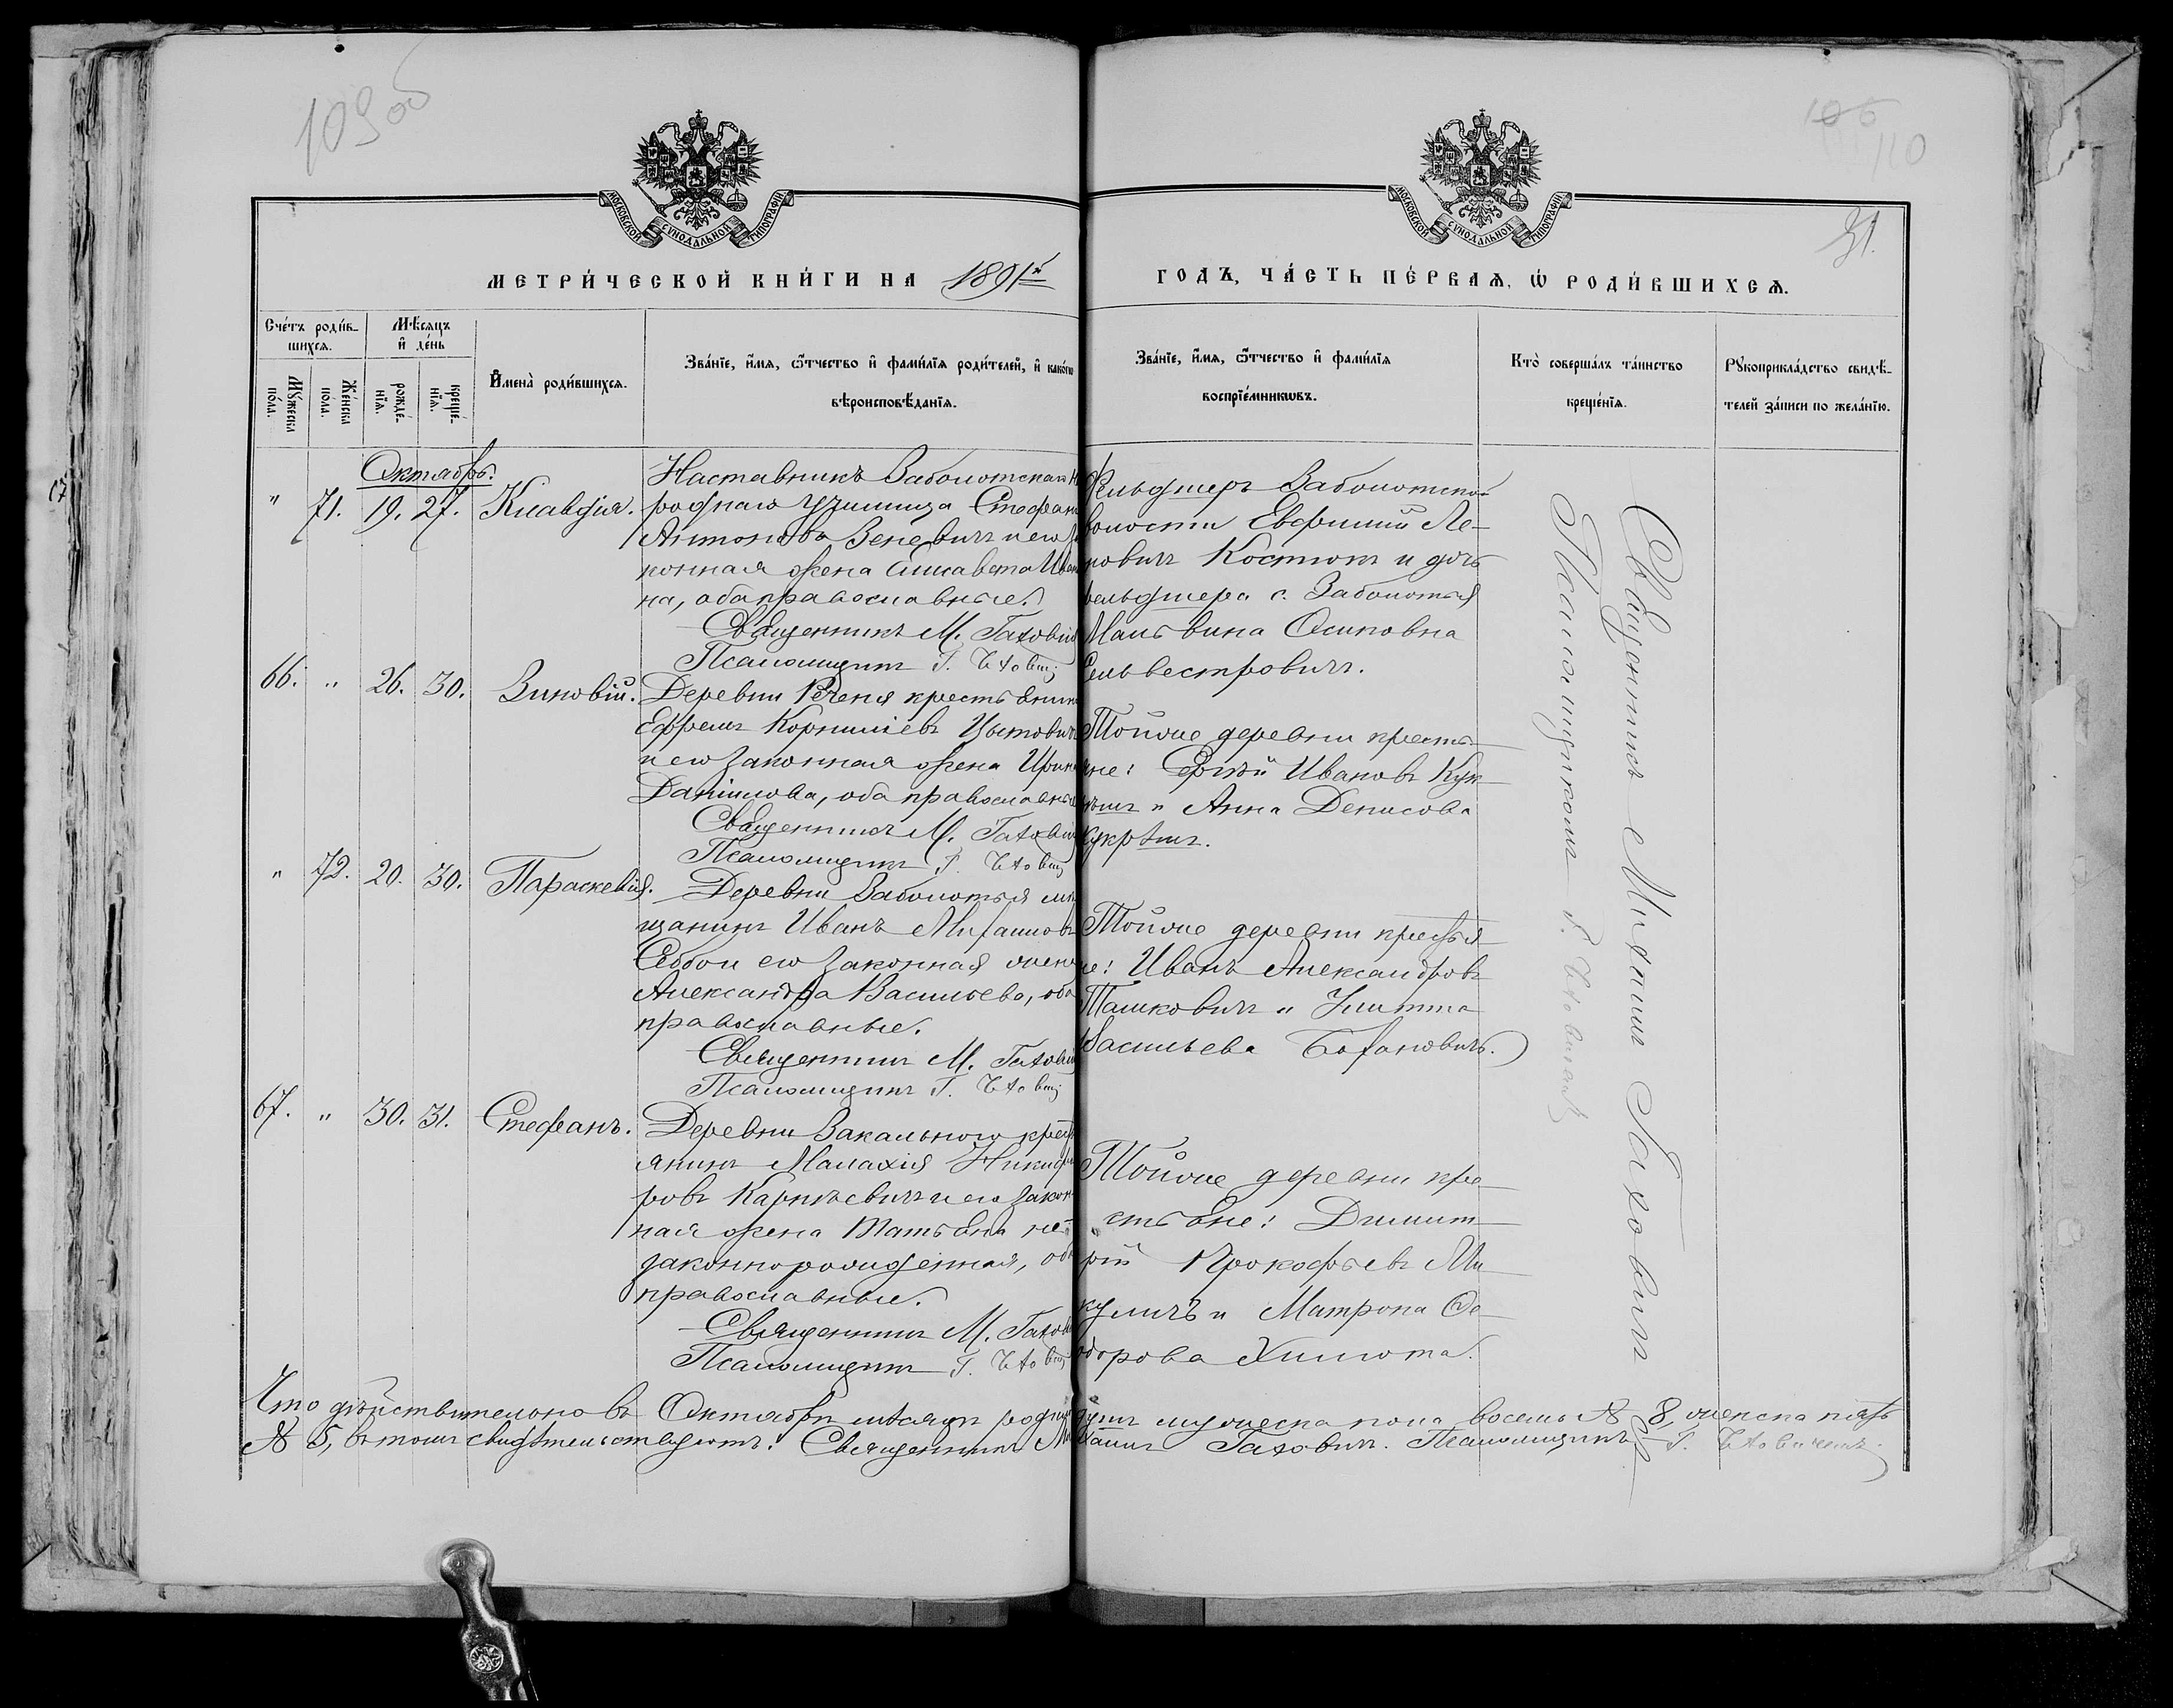 109об
106
110
31.
МОСКОВСКОЙ СѴНОДАЛЬНОЙ ТИПОГРАФІИ
МОСКОВСКОЙ СѴНОДАЛЬНОЙ ТИПОГРАФІИ
МЕТРИ́ЧЕСКОЙ КНИ́ГИ НА 1891й
ГОДЪ, ЧА́СТЬ ПЕ́РВАЯ, Ѡ РОДИ́ВШИХСЯ.
Сче́тъ роди́в-
шихся.
Мѣсяцъ
и де́нь
Мꙋжеска по́ла.
Же́нска по́ла.
рожде́-
нїя.
креще́-
нїя.
Имена̀ роди́вшихся.
Зва́нїе, и́мя, ѻ҆́тчество и фами́лїя роди́телей, и како́гѡ
вѣроисповѣ́данїя.
Зва́нїе, и́мя, ѻ҆́тчество и фами́лїя
воспрїе́мникѡвъ.
Кто̀ соверша́лъ та́инство
креще́нїя.
Рꙋкоприкла́дство свидѣ́-
телей за́писи по жела́нїю.
Октябрь.
" 71. 19. 27. Клавдія.
Наставникъ Заболотскаго На
роднаго училища Стефанъ
Антоновъ Веневичъ и его за
конная жена Елисавета Иван
на, оба православные.
Священникъ М. Гахович
Псаломщикъ
Фельдшеръ Заболотской
волости Евфимий Ле-
новичъ Костюкъ и дочь
фельдшера с. Заболотья
Мальвина Осиповна
Сельвестровичъ.
66. " 26. 30. Зиновій.
Деревни Реченя крестьянинъ
Ефремъ Корниліевъ Цытовичъ
и его законная жена Ирина
Даніилова, оба православные
Священникъ М. Гахович
Псаломщикъ
Тойже деревни кресть-
яне: Сергѣй Ивановъ Кук-
и Анна Денисова
" 72. 20. 30. Параскевія.
Деревни Заболотья мѣ
щанинъ Иванъ Михаиловъ
его законная жена
Александра Васильева, оба
православные.
Священникъ М. Гахович
Псаломщикъ
Тойже деревни крестья-
не: Иванъ Александровъ
Ташковичъ и Улитта
Васильева Боханович.
67. " 30. 31. Стефанъ.
Деревни Закального крест
янинъ Малахія Никифо
ровъ Карпіевичъ и его закон
ная жена Татьяна не-
законнорожденная, оба
православные.
Священникъ М. Гахович
Псаломщикъ
Тойже деревни кре-
стьяне: Димит-
рій Прокофьевъ Ми-
куличъ и Матрона Ѳе-
одорова Хилюта.
Священникъ Михаилъ Гаховичъ
съ Псаломщикомъ
Что дѣйствительно въ Октябрѣ мѣсяцѣ родившихся душъ мужеска пола восемь № 8, женска пять
№ 5, въ томъ свидѣтельствуютъ: Священникъ Михаилъ Гаховичъ. Псаломщикъ